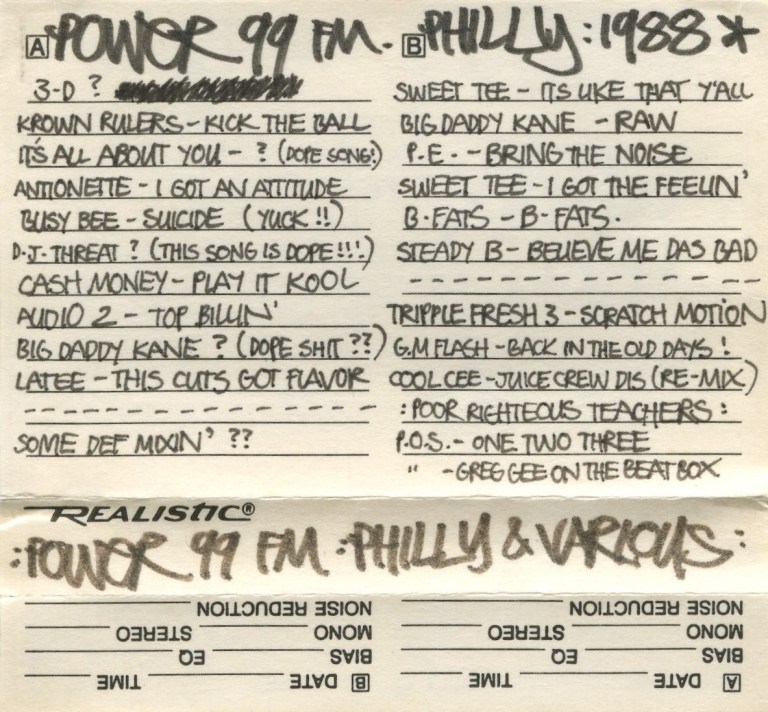 A POWER 99 FM.
3-D ?
KROWN RULERS - KICK THE BALL
IT'S ALL ABOUT YOU - ? (DOPE SONG!)
ANTIONETTE - I GOT AN ATTITUDE
BUSY BEE - SUICIDE (YUCK!!)
D.J. THREAT ? (THIS SONG IS DOPE!!!)
CASH MONEY - PLAY IT KOOL
AUDIO 2 - TOP BILLIN'
BIG DADDY KANE ? (DOPE SHIT ??)
LATEE - THIS CUTS GOT FLAVOR
SOME DEF MIXIN' ??
B PHILLY: 1988 *
SWEET TEE - ITS LIKE THAT Y'ALL
BIG DADDY KANE - RAW
P.E. - BRING THE NOISE
SWEET TEE - I GOT THE FEELIN'
B-FATS - B-FATS.
STEADY B - BELIEVE ME DAS BAD
TRIPPLE FRESH 3 - SCRATCH MOTION
G.M FLASH - BACK IN THE OLD DAYS!
COOL CEE - JUICE CREW DIS (RE-MIX)
: POOR RIGHTEOUS TEACHERS :
P.O.S. - ONE TWO THREE
" - GREG GEE ON THE BEAT BOX
REALISTIC®
: POWER 99 FM : PHILLY & VARIOUS :
A DATE TIME
BIAS EQ
MONO STEREO
NOISE REDUCTION
B DATE TIME
BIAS EQ
MONO STEREO
NOISE REDUCTION